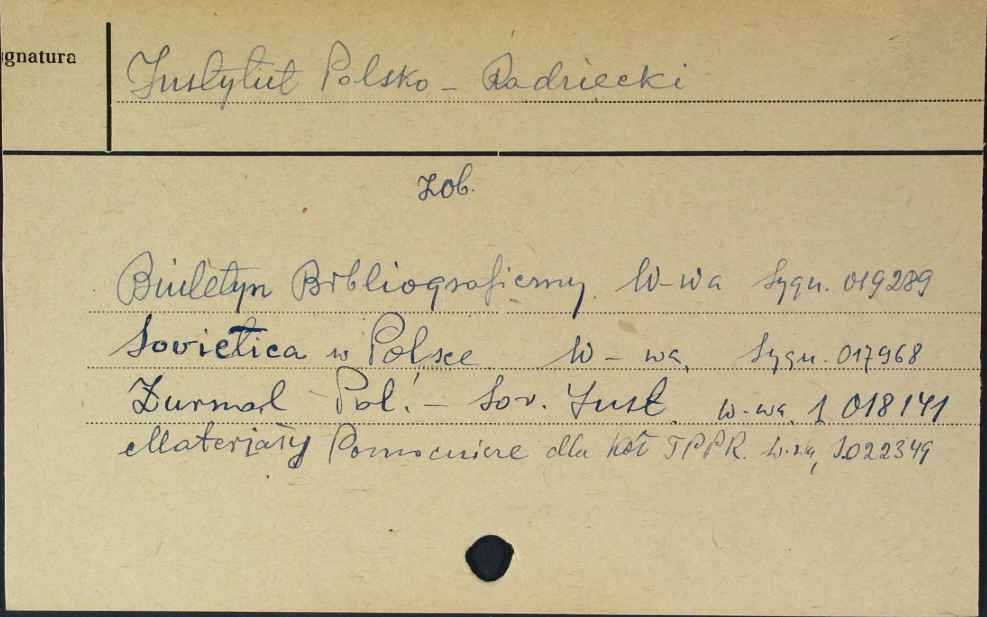 ygnatura
Instytut Polsko - Radziecki
zob.
Biuletyn Bibliograficzny. W-wa Sygn. 019289
Sovietica w Polsce W-wa, Sygn. 017968
Żurnal Pol. - Sov. Inst. W-wa, S 018141
Materjały Pomocnicze dla Kół TPPR. W-wa, S.022349